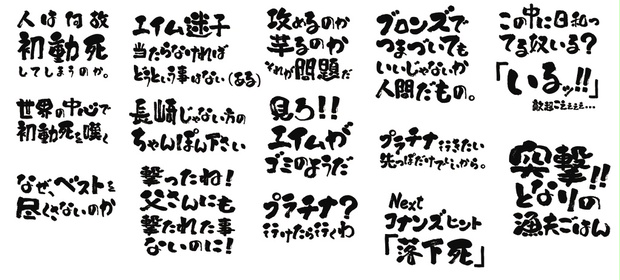 人は何故
初動死
してしまうのか。
世界の中心で
初動死を嘆く
なぜ、ベストを
尽くさないのか
エイム迷子
当たらなければ
どうという事はない(ある)
長崎じゃない方の
ちゃんぽん下さい
撃ったね!
父さんにも
撃たれた事
ないのに!
攻めるのか
芋るのか
それが問題だ
見ろ!!
エイムが
ゴミのようだ
プラチナ?
行けたら行くわ
ブロンズで
つまづいても
いいじゃないか
人間だもの。
プラチナ行きたい
先っぽだけでいいから。
Next
コナンズヒント
「落下死」
この中に日和っ
てる奴いる?
「いるッ!!」
敵超こえぇぇぇ…
突撃!!
となりの
漁夫ごはん